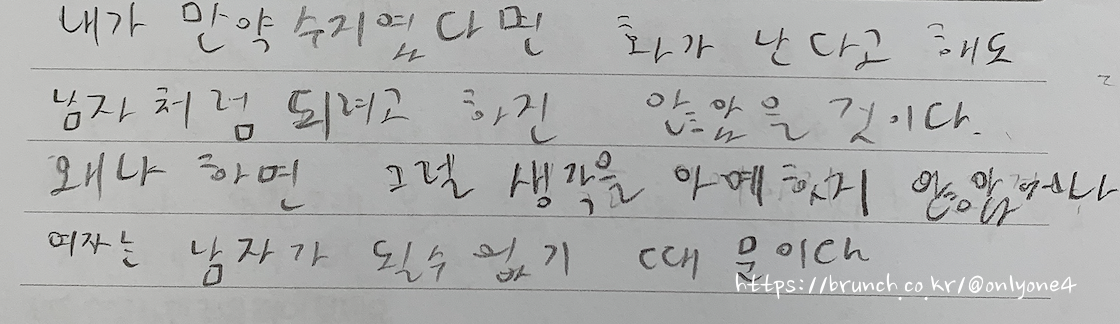 내가 만약 수지였다면 화가 난다고 해도
남자처럼 되려고 하진 않았을 것이다.
왜냐하면 그럴 생각을 아예하지
여자는 남자가 될수 없기 때문이다
https://brunch.co.kr/@onlyone4